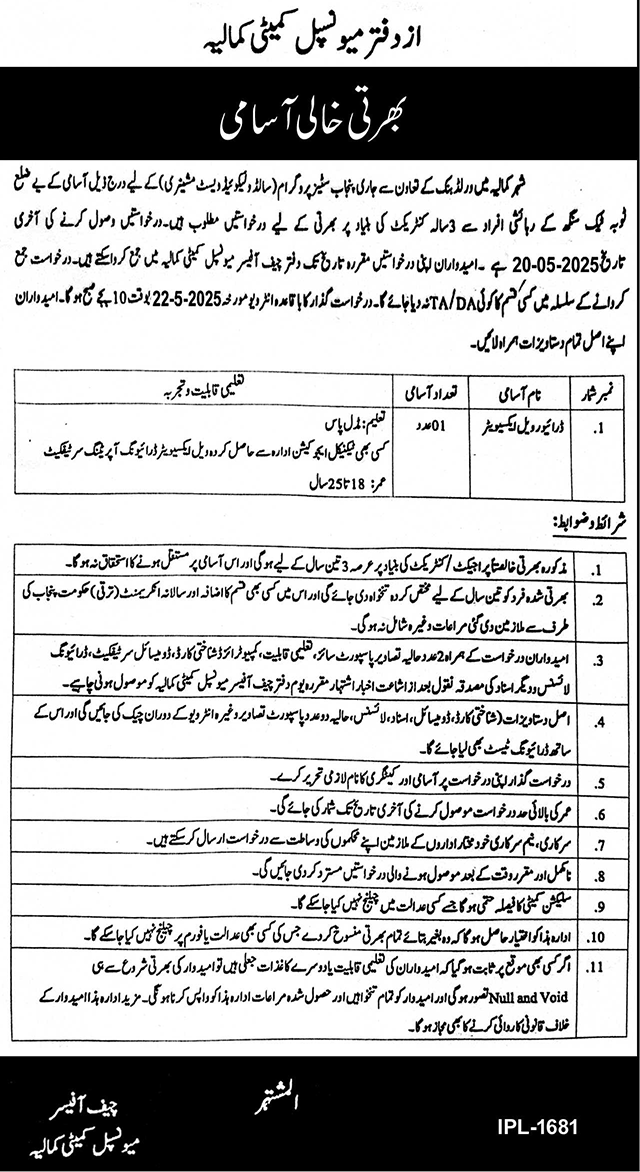 از دفتر میونسپل کمیٹی کمالیہ
بھرتی خالی آسامی
شہر کمالیہ میں ورلڈ بنک کے تعاون سے جاری پنجاب سٹیز پروگرام (سالڈ و لیکوئیڈ ویسٹ مشینری) کے لیے درج ذیل آسامی کے لیے ضلع
ٹوبہ ٹیک سنگھ کے رہائشی افراد سے 3 سالہ کنٹریکٹ کی بنیاد پر بھرتی کے لیے درخواستیں مطلوب ہیں۔ درخواستیں وصول کرنے کی آخری
تاریخ 20-05-2025 ہے۔ امیدواران اپنی درخواستیں مقررہ تاریخ تک دفتر چیف آفیسر میونسپل کمیٹی کمالیہ میں جمع کروا سکتے ہیں۔ درخواست جمع
کروانے کے سلسلہ میں کسی قسم کا کوئی TA/DA نہ دیا جائے گا۔ درخواست گذار کا باقاعدہ انٹرویو مورخہ 22-5-2025 بوقت 10 بجے صبح ہوگا۔ امیدواران
اپنے اصل تمام دستاویزات ہمراہ لائیں۔
نمبر شمار نام آسامی تعداد آسامی تعلیمی قابلیت و تجربہ
1. ڈرائیور ویل ایکسیویٹر 01 عدد تعلیم: مڈل پاس
کسی بھی ٹیکنیکل ایجوکیشن ادارہ سے حاصل کردہ ویل ایکسیویٹر ڈرائیونگ آپریٹنگ سرٹیفکیٹ
عمر: 18 تا 25 سال
شرائط و ضوابط:
1. مذکورہ بھرتی خالصتاً پراجیکٹ / کنٹریکٹ کی بنیاد پر عرصہ 3 تین سال کے لیے ہوگی اور اس آسامی پر مستقل ہونے کا استحقاق نہ ہوگا۔
2. بھرتی شدہ فرد کو تین سال کے لیے مختص کردہ تنخواہ دی جائے گی اور اس میں کسی بھی قسم کا اضافہ اور سالانہ انکریمنٹ (ترقی) حکومت پنجاب کی
طرف سے ملازمین دی گئی مراعات وغیرہ شامل نہ ہوگی۔
3. امیدواران درخواست کے ہمراہ 2 عدد حالیہ تصاویر پاسپورٹ سائز، تعلیمی قابلیت، کمپیوٹرائزڈ شناختی کارڈ، ڈومیسائل سرٹیفکیٹ، ڈرائیونگ
لائسنس و دیگر اسناد کی مصدقہ نقول بعد از اشاعت اخبار اشتہار مقررہ یوم دفتر چیف آفیسر میونسپل کمیٹی کمالیہ کو موصول ہونی چاہیے۔
4. اصل دستاویزات (شناختی کارڈ، ڈومیسائل، اسناد، لائسنس، حالیہ دو عدد پاسپورٹ تصاویر وغیرہ انٹرویو کے دوران چیک کی جائیں گی اور اس کے
ساتھ ڈرائیونگ ٹیسٹ بھی لیا جائے گا۔
5. درخواست گذار اپنی درخواست پر آسامی اور کیٹگری کا نام لازمی تحریر کرے۔
6. عمر کی بالائی حد درخواست موصول کرنے کی آخری تاریخ تک شمار کی جائے گی۔
7. سرکاری، نیم سرکاری خودمختار اداروں کے ملازمین اپنے محکموں کی وساطت سے درخواست ارسال کر سکتے ہیں۔
8. نامکمل اور مقرر وقت کے بعد موصول ہونے والی درخواستیں مسترد کر دی جائیں گی۔
9. سلیکشن کمیٹی کا فیصلہ حتمی ہوگا جسے کسی عدالت میں چیلنج نہیں کیا جا سکے گا۔
10. ادارہ ہذا کو اختیار حاصل ہوگا کہ وہ بغیر بتائے تمام بھرتی منسوخ کر دے جس کی کسی بھی عدالت یا فورم پر چیلنج نہیں کیا جا سکے گا۔
11. اگر کسی بھی موقع پر ثابت ہو گیا کہ امیدواران کی تعلیمی قابلیت یا دوسرے کاغذات جعلی ہیں تو امیدوار کی بھرتی شروع سے ہی
Null and Void تصور ہوگی اور امیدوار کو تمام تنخواہیں اور حصول شدہ مراعات ادارہ ہذا کو واپس کرنا ہونگی۔ مزید ادارہ ہذا امیدوار کے
خلاف قانونی کاروائی کرنے کا بھی مجاز ہوگا۔
المشتہر
چیف آفیسر
میونسپل کمیٹی کمالیہ
IPL-1681